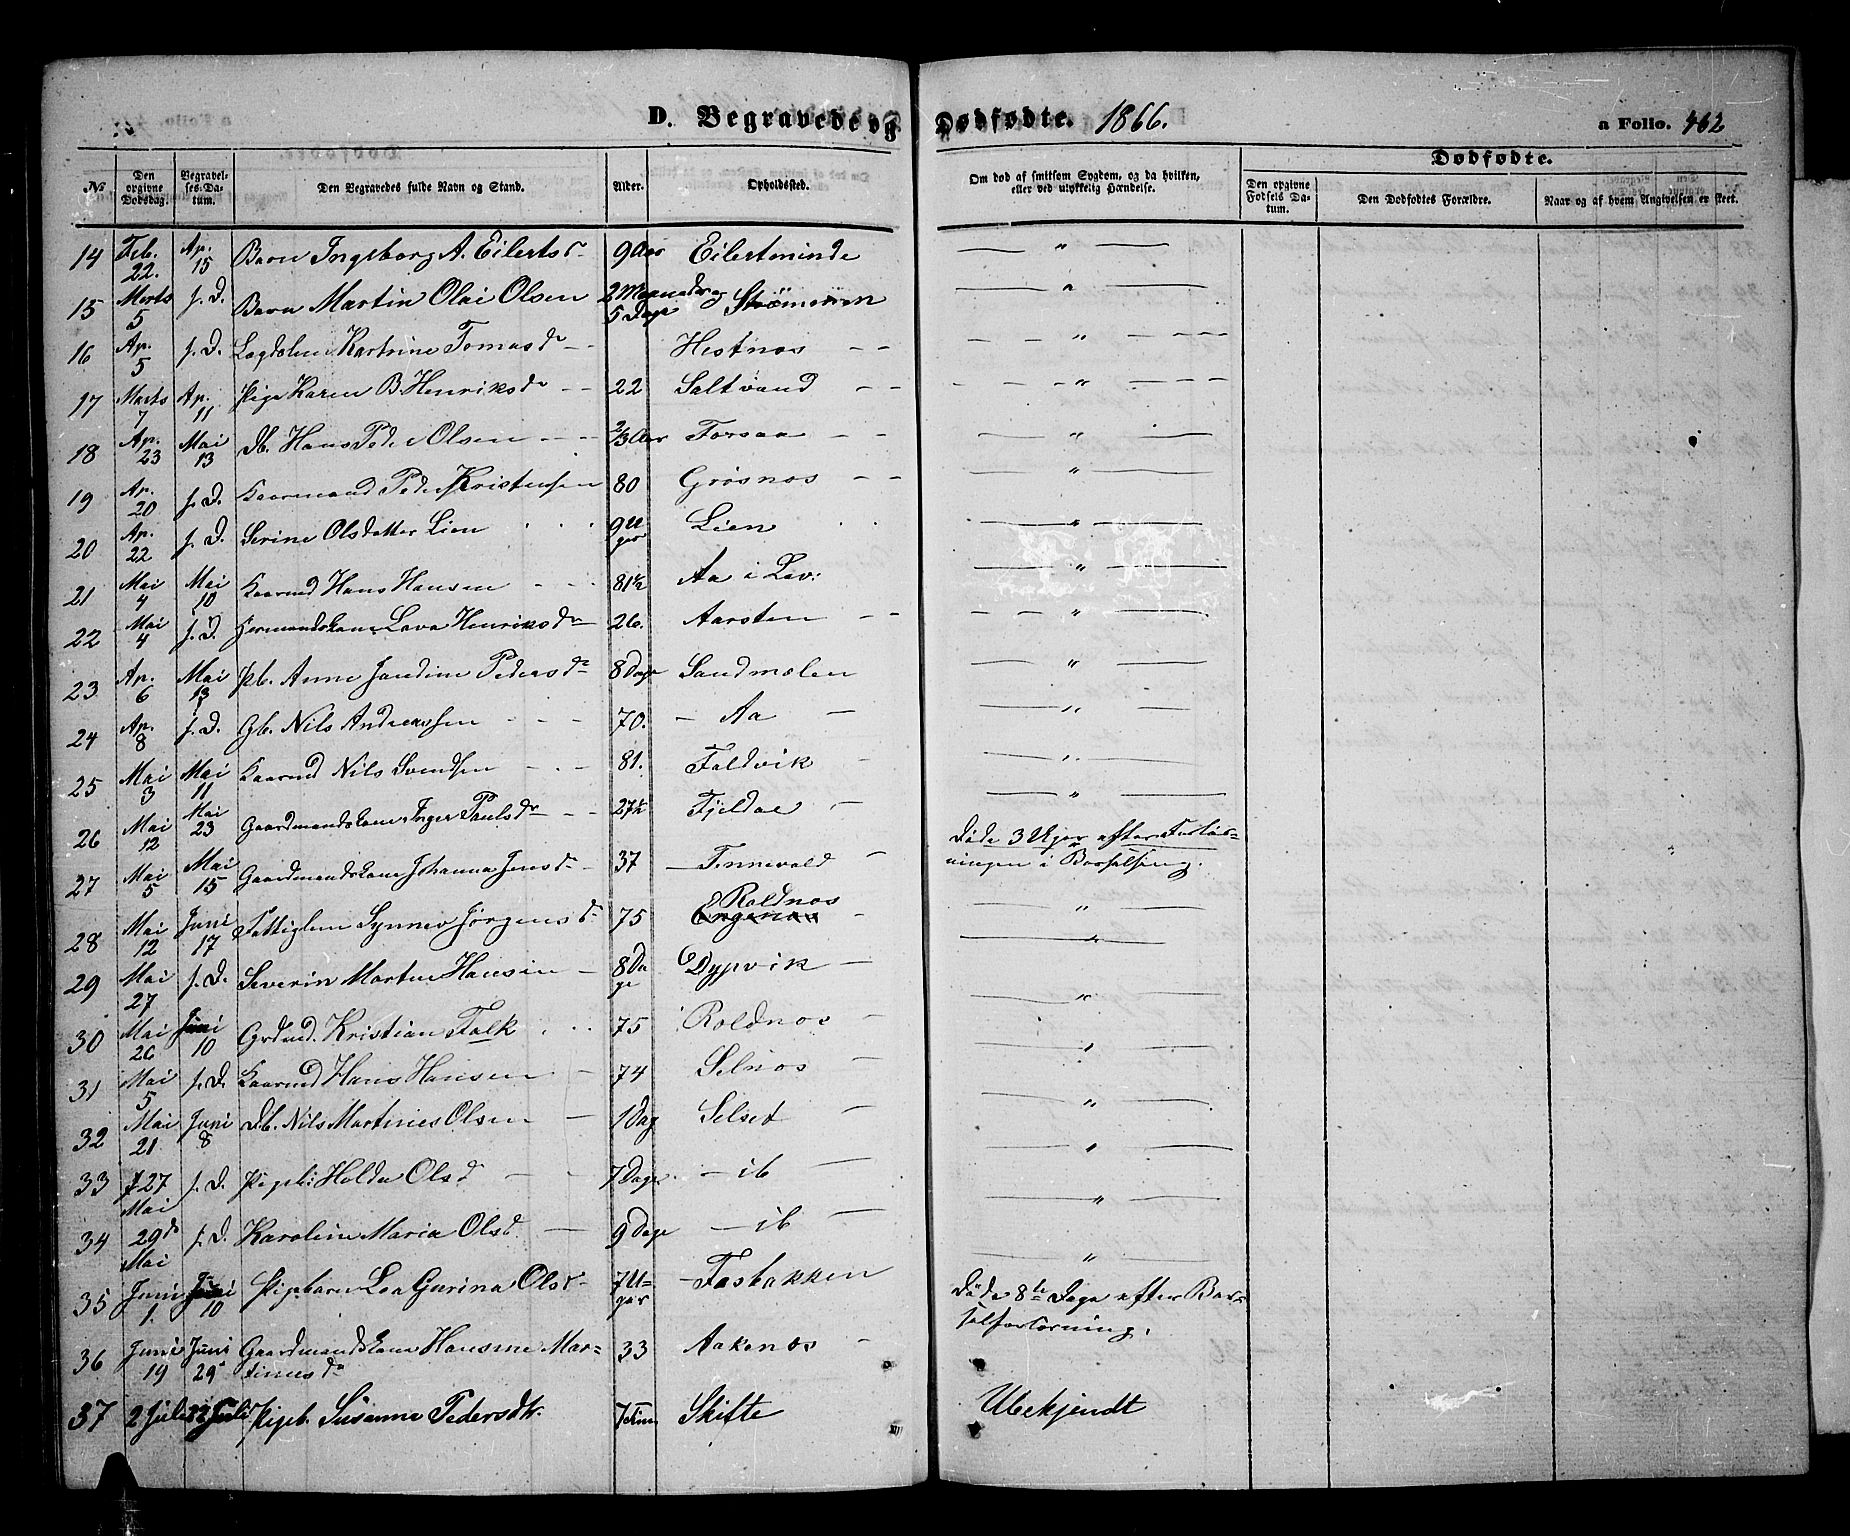 D. Begravede og Dødfødte. 1866. a Folio. 462
Dødfødte.
№ Den opgivne Dødsdag. Begravelses-Datum. Den Begravedes fulde Navn og Stand. Alder. Opholdssted. Om død af smitsom Sygdom, og da hvilken, eller ved ulykkelig Hændelse. Den opgivne Fødsels Datum. Den Dødfødtes Forældre. Naar og af hvem Angivelsen er skeet.
14 Feb. 22. Ap. 15 Barn Ingeborg A. Eilertsdr 9 Aar Eilertminde — " —
15 Marts 5 s. D. Barn Martin Olai Olsen 2 Maaneder og 5 Dage — " —
16 Ap. 5 s. D. Lægdslem Katrine Tomasdr - - Hestnæs - - — " —
17 Marts 7 Ap. 11 Pige Karen B. Henriksdr - - 22 Saltvand - - — " —
18 Ap. 23 Mai 13 Db. Hans Peder Olsen - - - 2/3 Aar Forsaa - - — " —
19 Ap. 20 s. D. Kaarmand Peder Kristensen 80 Grøsnæs - - — " —
20 Ap. 22 s. D. Serine Olsdatter Lien 9 Uger Lien — " —
21 Mai 4 Mai 10 Kaarmd Hans Hansen - - 81½ Aa i Lav: — " —
22 Mai 4 s. D. Lava Henriksdr 26. Aarsten - - — " —
23 Ap. 6 Mai 13 Pb. Anne Jandine Pedersdr 8 Dage Sandmælen — " —
24 Ap. 8 s. D. Gb. Nils Andreassen - - - 70. - Aa - — " —
25 Mai 3 Mai 11 Kaarmd Nils Svendsen - - - 81. Foldvik - — " —
26 Mai 12 Mai 23 Gaardmandskone Inger Paulsdr - - 27½ Fjeldal - — " —
27 Mai 5 Mai 15 Gaardmandskone Johanna Jensdr - 37 — Tennevold - Døde 3 Uger efter Forløsningen i Barselseng.
28 Mai 12 Juni 17 Fattiglem Synnev Jørgensdr 75 Roldnæs - — " —
29 Mai 27 s. D. Severin Martin Hansen - 8 Dage Dypvik — — " —
30 Mai 26 Juni 10 Grdmd. Kristian Falk 75 Roldnæs - — " —
31 Mai 5 s. D. Kaarmd Hans Hansen - 74 Selnæs - — " —
32 Mai 21 Juni 8 Db. Nils Martines Olsen — 1 Dag Selset — — " —
33 27 Mai s. D. Pigeb: Holda Olsd - - 7 Dage. — ib — — " —
34 29de Mai s. D. Karoline Maria Olsd. — 9 Dage — ib — — " —
35 Juni 1. Juni 10 Pigebarn Lea Gurina Olsdr 7 Uger — Fosbakken — " —
36 Juni 19 Juni 29 Gaardmandskone Hansine Martinusdr 33 Aakenes - Døde 8te Dage efter Barselforløsning.
37 2 Juli 22 Juli Pigeb. Susanne Pedersdtr. 7 Tim Skifte Ubekjendt